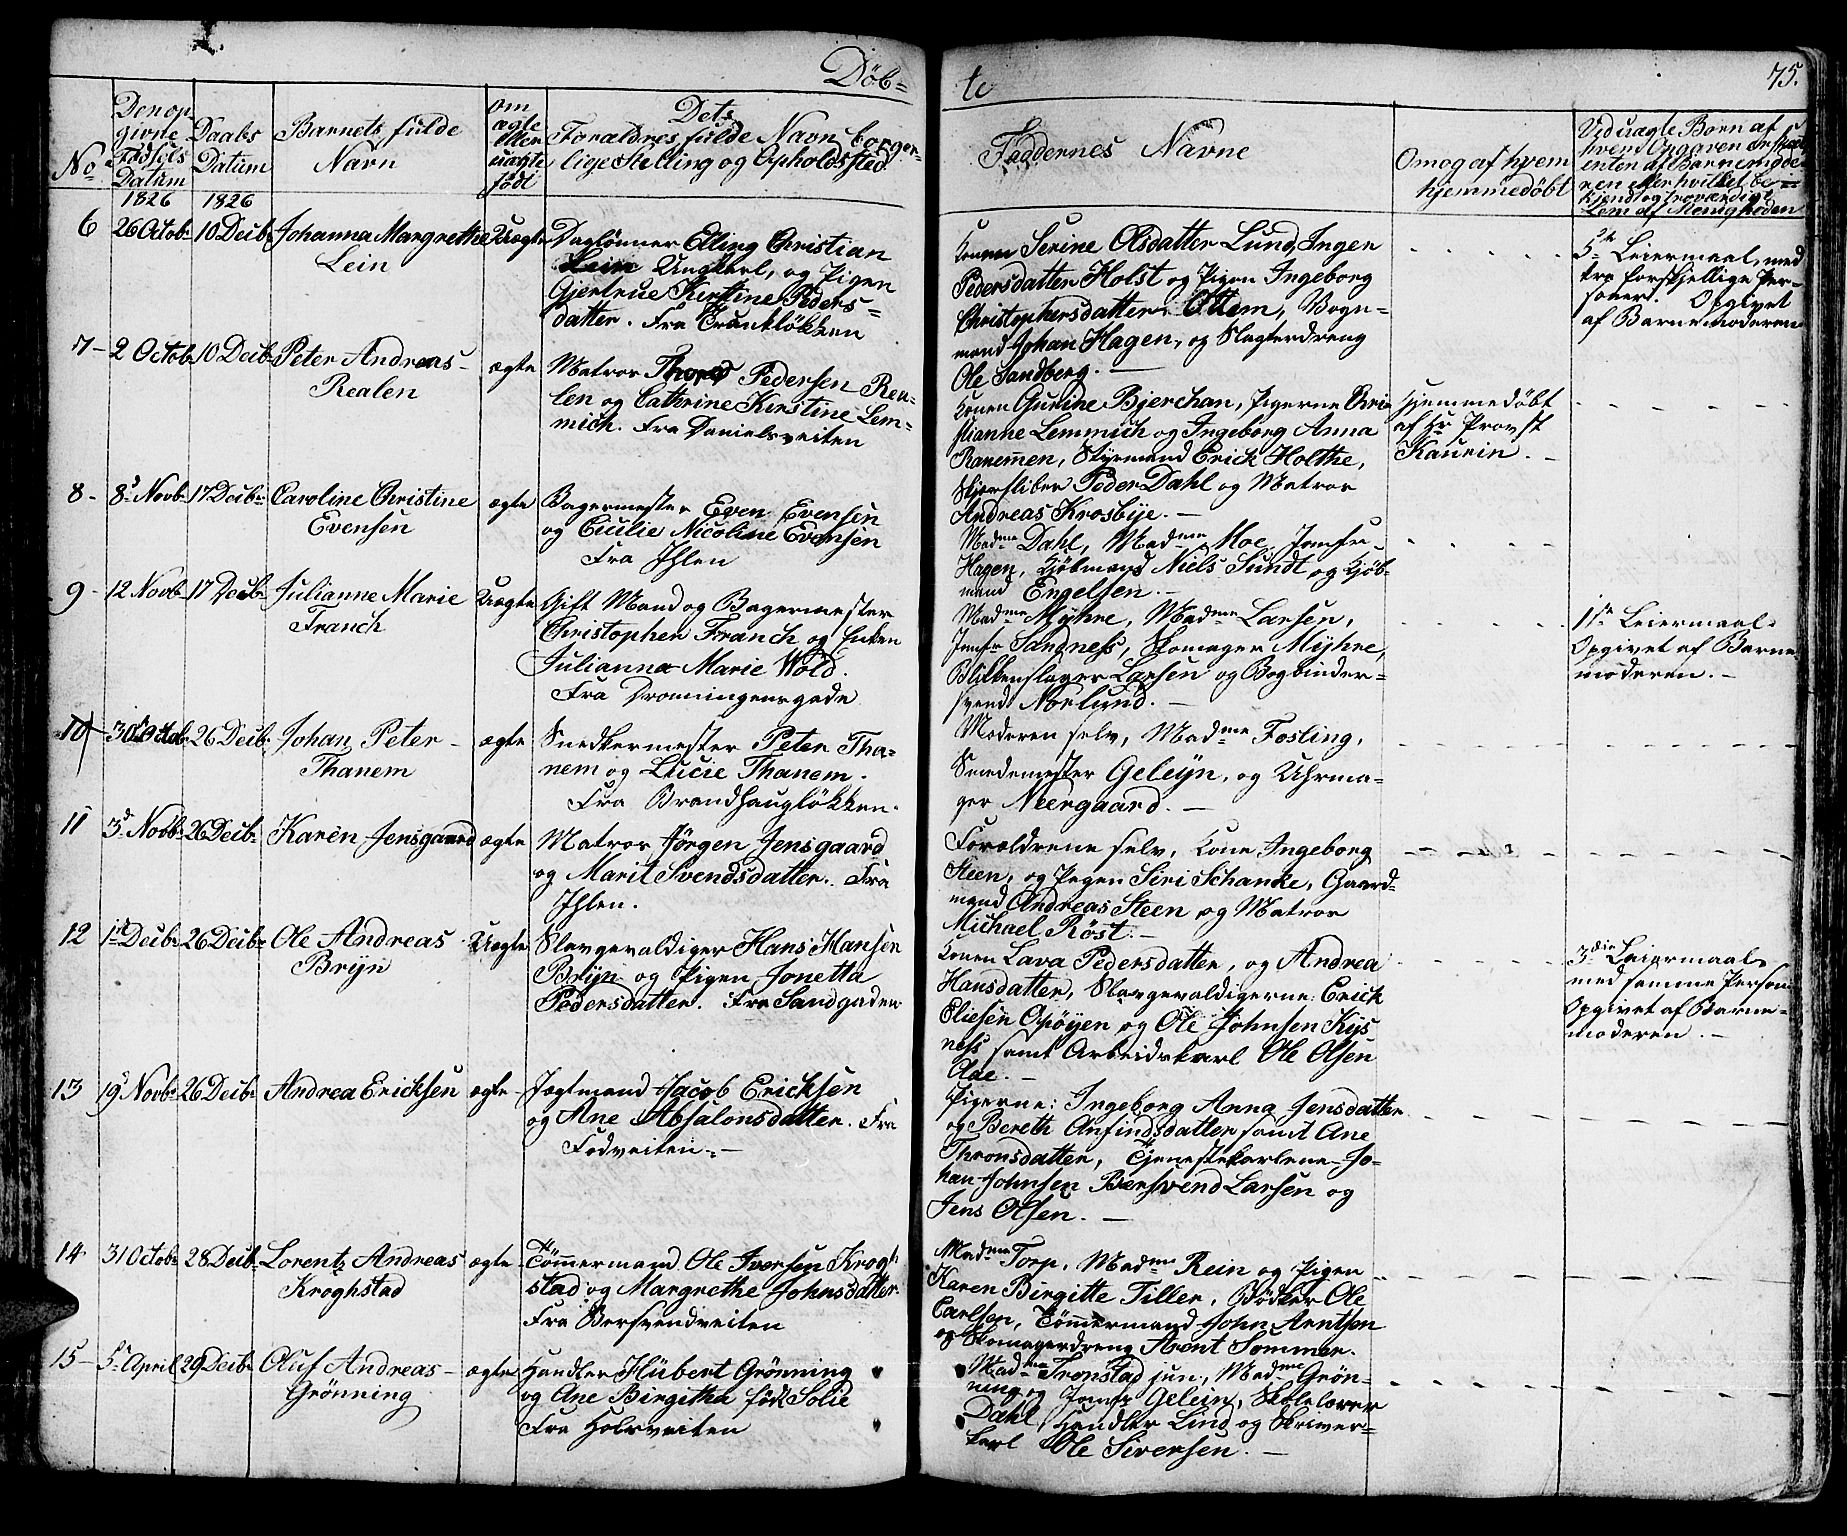 Döb=
te
75.
No
Den op
givne
Fødsels
Datum
1826
Daabs
Datum
1826
Barnets fulde
Navn
Om
ægte
eller
uægte
født
Dets
Forældres fulde Navn borger-
lige Stelling og Opholdssted.
Faddernes Navne
Om og af hvem
hjemmedøbt
Ved uægte Børn af
hvem Opgaven er skeet
enten af Barnemode
ren eller hvilket be-
kjendt og troværdigt
Lem af Menigheden
6
26 Octob:
10 Decb:
Johanna Margrethe
Lein
Uægte
Daglønner Elling Christian
Lein Ungkarl, og Pigen
Gjertrue Kirstine Peders=
datter. Fra Trunkløkken
Konen Serine Olsdatter Lund, Inger
Pedersdatter Holst og Pigen Ingeborg
Christophersdatter Ottem, Vogn=
mand Johan Hagen, og Slagterdreng
Ole Sandberg. —
5te Leiermaal, med
tre forskjellige Per-
soner. Opgivet
af Barnemoderen
7 -
2 Octob
10 Decb:
Peter Andreas -
Realen
ægte
Matros Thored Pedersen Rea=
len og Cathrine Kirstine Lem=
mich. Fra Danielsveiten
Konen Gurine Bjerchan, Pigerne Chri
stianne Lemmich og Ingeborg Anna
Ranemen, Styrmand Erick Holthe,
Skjærsliber Peder Dahl og Matros
Andreas Krosbye. —
Hjemmedøbt
af Hr Provst
Kaurin. -
8 -
8 Novb:
17 Decb:
Caroline Christine
Evensen
ægte
Bagermester Even Evensen
og Cicilie Nicoline Evensen
Fra Ihlen
Madme Dahl, Madme Moe, Jomfru
Hagen, Kjøbmand Niels Sundt og Kjøb-
mand Engelsen. —
9 -
12 Novb:
17 Decb:
Julianne Marie
Franch
Uægte
Gift Mand og Bagermester
Christopher Franch og Enken
Julianna Marie Wold.
Fra Dronningensgade
Madme Myhre, Madme Larsen,
Jomfr Sandness, Skomager Myhre,
Blikkenslager Larsen og Bogbinder=
svend Norlund. —
1ste Leiermaal.
Opgivet af Barne-
moderen. —
10
30 Octob:
26 Decb:
Johan Peter -
Thanem
ægte
Snedkermester Peter Tha=
nem og Lucie Thanem.
Fra Brandhaugløkken.
Moderen selv, Madme Fosling,
Smedemester Geleyn, og Uhrma-
ger Neergaard. —
11
3 Novb:
26 Decb:
Karen Jensgaard
ægte
Matros Jørgen Jensgaard
og Marit Svendsdatter. Fra
Ihlen.
Forældrene selv, Kone Ingeborg
Steen, og Pigen Siri Schanke, Gaard=
mand Andreas Steen og Matros
Michael Röst. —
12
1 Decb:
26 Decb:
Ole Andreas
Bryn
Uægte
Slavgevaldiger Hans Hansen
Bryn og Pigen Jonetta
Pedersdatter. Fra Sandgaden
Konen Lava Pedersdatter, og Andrea
Hansdatter, Slavgevaldigerne: Erick
Eliesen Opøyen og Ole Johnsen Kys
ness samt Arbeidskarl Ole Olsen
Aae. —
3die Leiermaal
med samme Person
Opgivet af Barne=
moderen. —
13
19 Novb:
26 Decb:
Andrea Ericksen
ægte
Jægtmand Jacob Ericksen
og Ane Absalonsdatter. Fra
Fodveiten. —
Pigerne: Ingeborg Anna Jensdatter
og Bereth Anfindsdatter samt Ane
Thronsdatter, Tjenestekarlene Jo-
han Johnsen Bersvend Larsen og
Jens Olsen. —
14
31 Octob:
28 Decb:
Lorentz Andreas
Kroghstad
ægte
Tømmermand Ole Iversen Krogh
stad og Margrethe Johnsdatter
Fra Bersvendveiten
Madme Torp, Madme Rein og Pigen
Karen Birgitte Tiller, Bødker Ole
Carlsen, Tømmermand John Arntsen
og Skomagerdreng Arent Sommer.
15 -
5 April
29 Decb:
Oluf Andreas -
Grönning
ægte
Handler Hubert Grönning
og Ane Birgitha født Solie
Fra Holsveiten
Madme Tronstad jun, Madme Grön-
ning og Jomfr Gelein, Skolelærer
Dahl, Handler Lind og Skriver-
karl Ole Sivensen. —